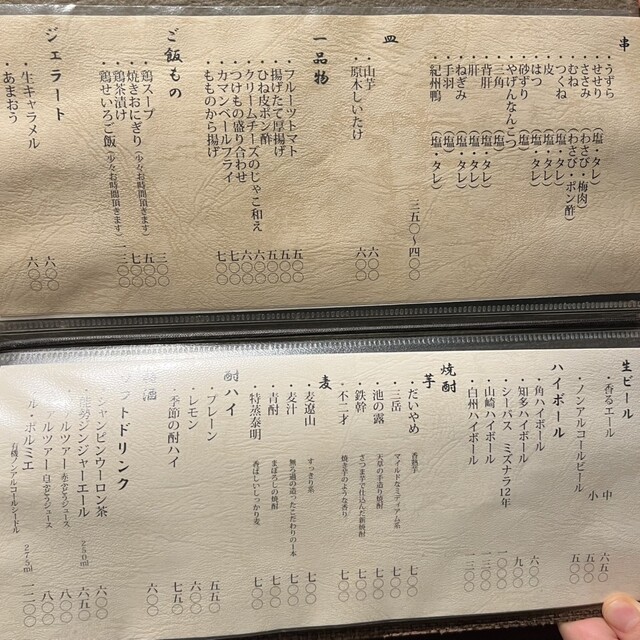 串
・うずら
・せせり (塩・タレ)
・ささみ (わさび・梅肉)
・むね (わさび・ポン酢)
・つくね (塩・タレ)
・皮 (塩・タレ)
・はつ (塩・タレ)
・砂ずり
・やげんなんこつ
・三角 (塩・タレ)
・背肝 (塩・タレ)
・肝 (塩・タレ)
・ねぎみ (塩・タレ)
・手羽
・紀州鴨 (塩・タレ)
三五〇〜四〇〇
皿
・山芋 六〇〇
・原木しいたけ 六〇〇
一品物
・フルーツトマト 五〇〇
・揚げたて厚揚げ 五〇〇
・ひね皮ポン酢 五〇〇
・クリームチーズのじゃこ和え 六〇〇
・つけもの盛り合わせ 六〇〇
・カマンベールフライ 七〇〇
・もものから揚げ 七〇〇
ご飯もの
・鶏スープ 三〇〇
・焼きおにぎり (少々お時間頂きます) 五〇〇
・鶏茶漬け 七〇〇
・鶏せいろご飯 (少々お時間頂きます) 一三〇〇
ジェラート
・生キャラメル 六〇〇
・あまおう 六〇〇
生ビール
・香るエール 中 六五〇
小 五五〇
ノンアルコールビール 五〇〇
ハイボール
・角ハイボール 六〇〇
・知多ハイボール 九〇〇
・シーバス ミズナラ12年 一〇〇〇
・山崎ハイボール 一三〇〇
・白州ハイボール 一三〇〇
焼酎
芋
・だいやめ 香熟芋 七〇〇
・三岳 マイルドなミディアム系 七〇〇
・池の露 天草の手造り焼酎 七〇〇
・鉄幹 さつま芋で仕込んだ新焼酎 七〇〇
・不二才 焼き芋のような香り 七〇〇
麦
・麦遼山 すっきり系 七〇〇
・麦汁 無ろ過の造ったこだわりの一本 七〇〇
・青酎 まぼろしの焼酎 七〇〇
・特蒸泰明 香ばしいしっかり麦 七〇〇
酎ハイ
・プレーン 五五〇
・レモン 六〇〇
・季節の酎ハイ 七五〇
酒
六〇〇
フトドリンク
ジャンピンウーロン茶 六〇〇
能勢ジンジャーエール 250ml 六五〇
アルツァー 赤ぶどうジュース 八〇〇
アルツァー 白ぶどうジュース 八〇〇
ル・ポルミエ 有機ノンアルコールシードル 275ml 一二〇〇